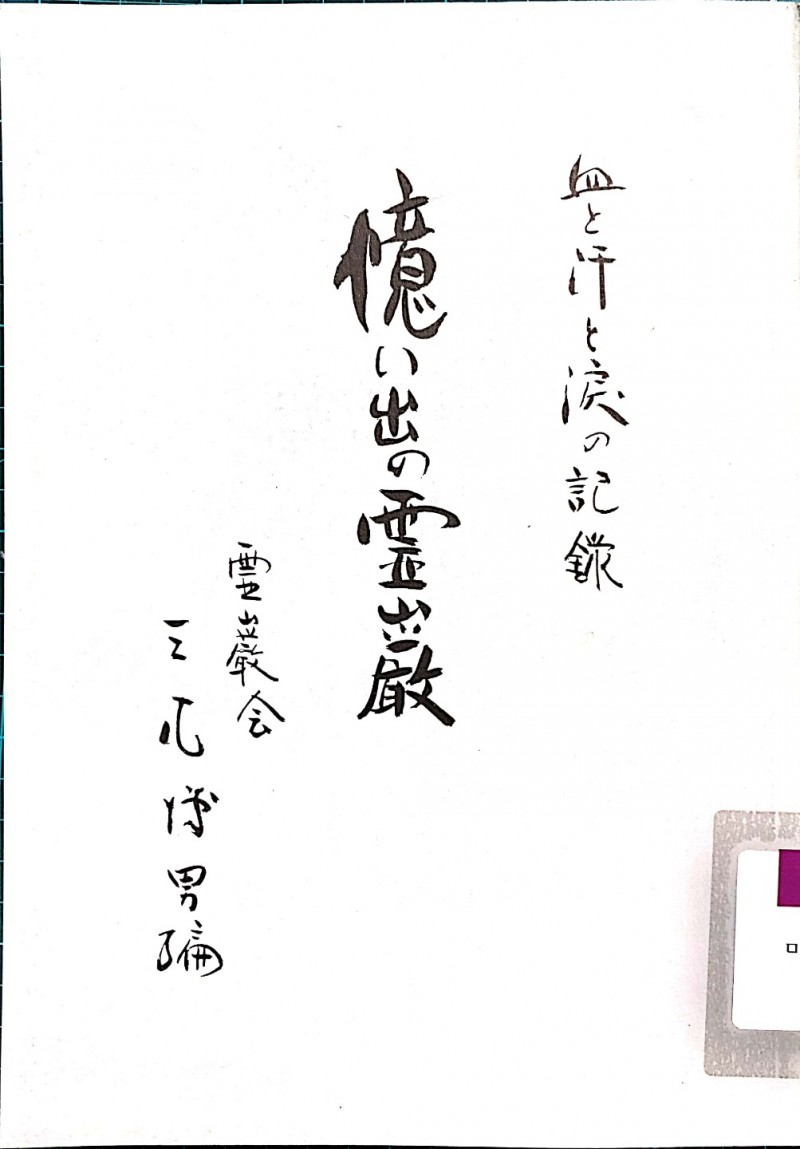 血と汗と涙の記録
憶い出の霊巌
霊巌会
三 博男編
ロ